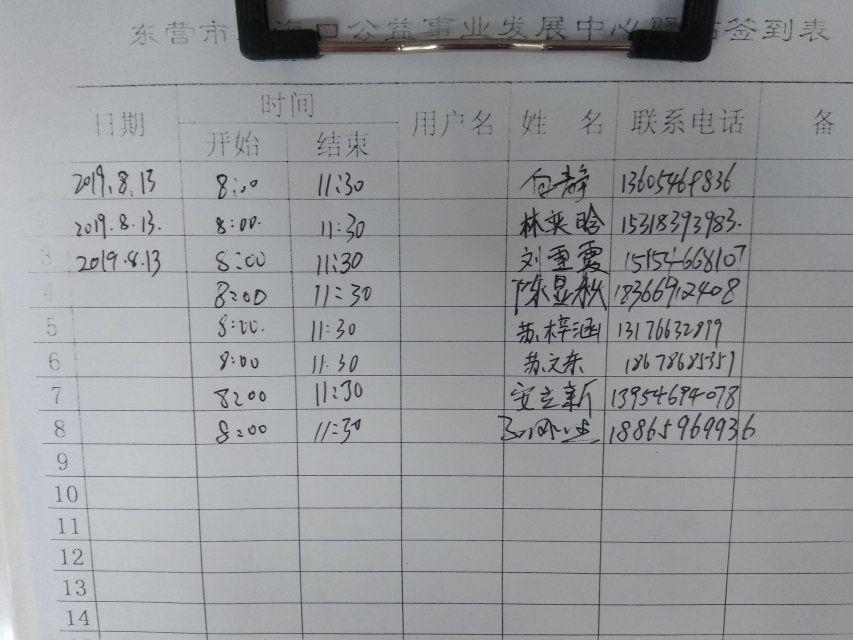 东营市 海口公益事业发展中心 签到表
日期 时间 用户名 姓 名 联系电话 备
开始 结束
2019.8.13 8:00 11:30 13605469836
2019.8.13. 8:00. 11:30 林奕晗 15318393983.
3 2019.8.13 8:00 11:30 刘重霞 15154668107
4 8:00 11:30 陈显秋 18366912408
5 8:00. 11:30 苏梓涵 13176632899
6 8:00 11:30 苏文东 18678685357
7 8:00 11:30 安立新 13954694078
8 8:00 11:30 18865969936
9
10
11
12
13
14